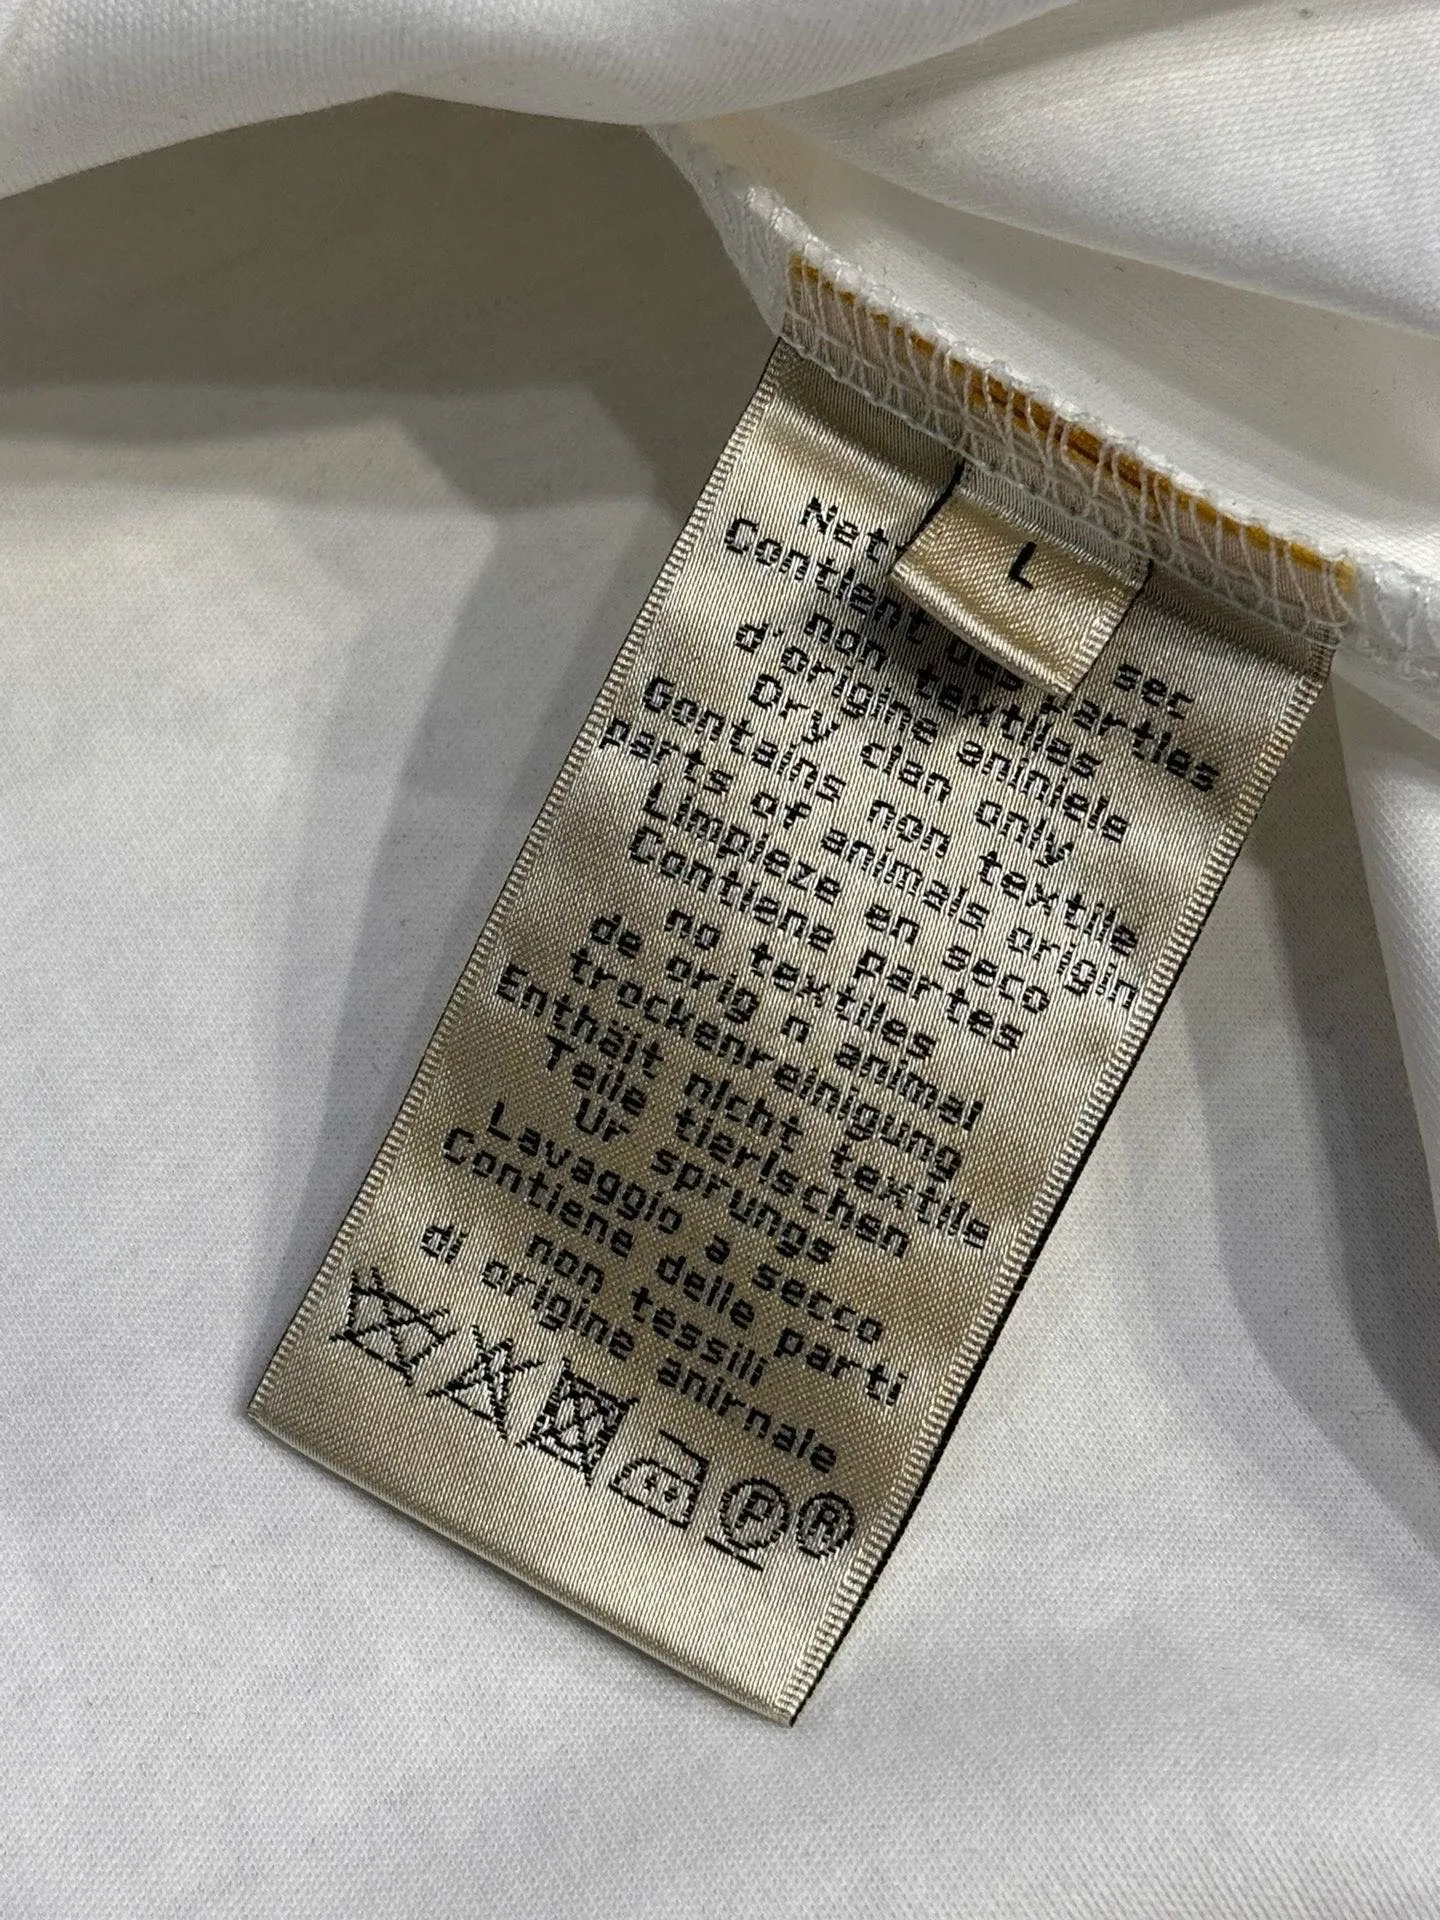 L
sec
Contient des parties
non textiles
d'origine aniniels
Dry clan only
Gontains non textile
parts of animals origin
Limpieze en seco
Contiene partes
no textiles
de orig n animal
trockenreinigung
Enthäit nicht textile
Teile tierischen
Ur sprungs
Lavaggio a secco
Contiene delle parti
non tessili
di origine anirnale
P R